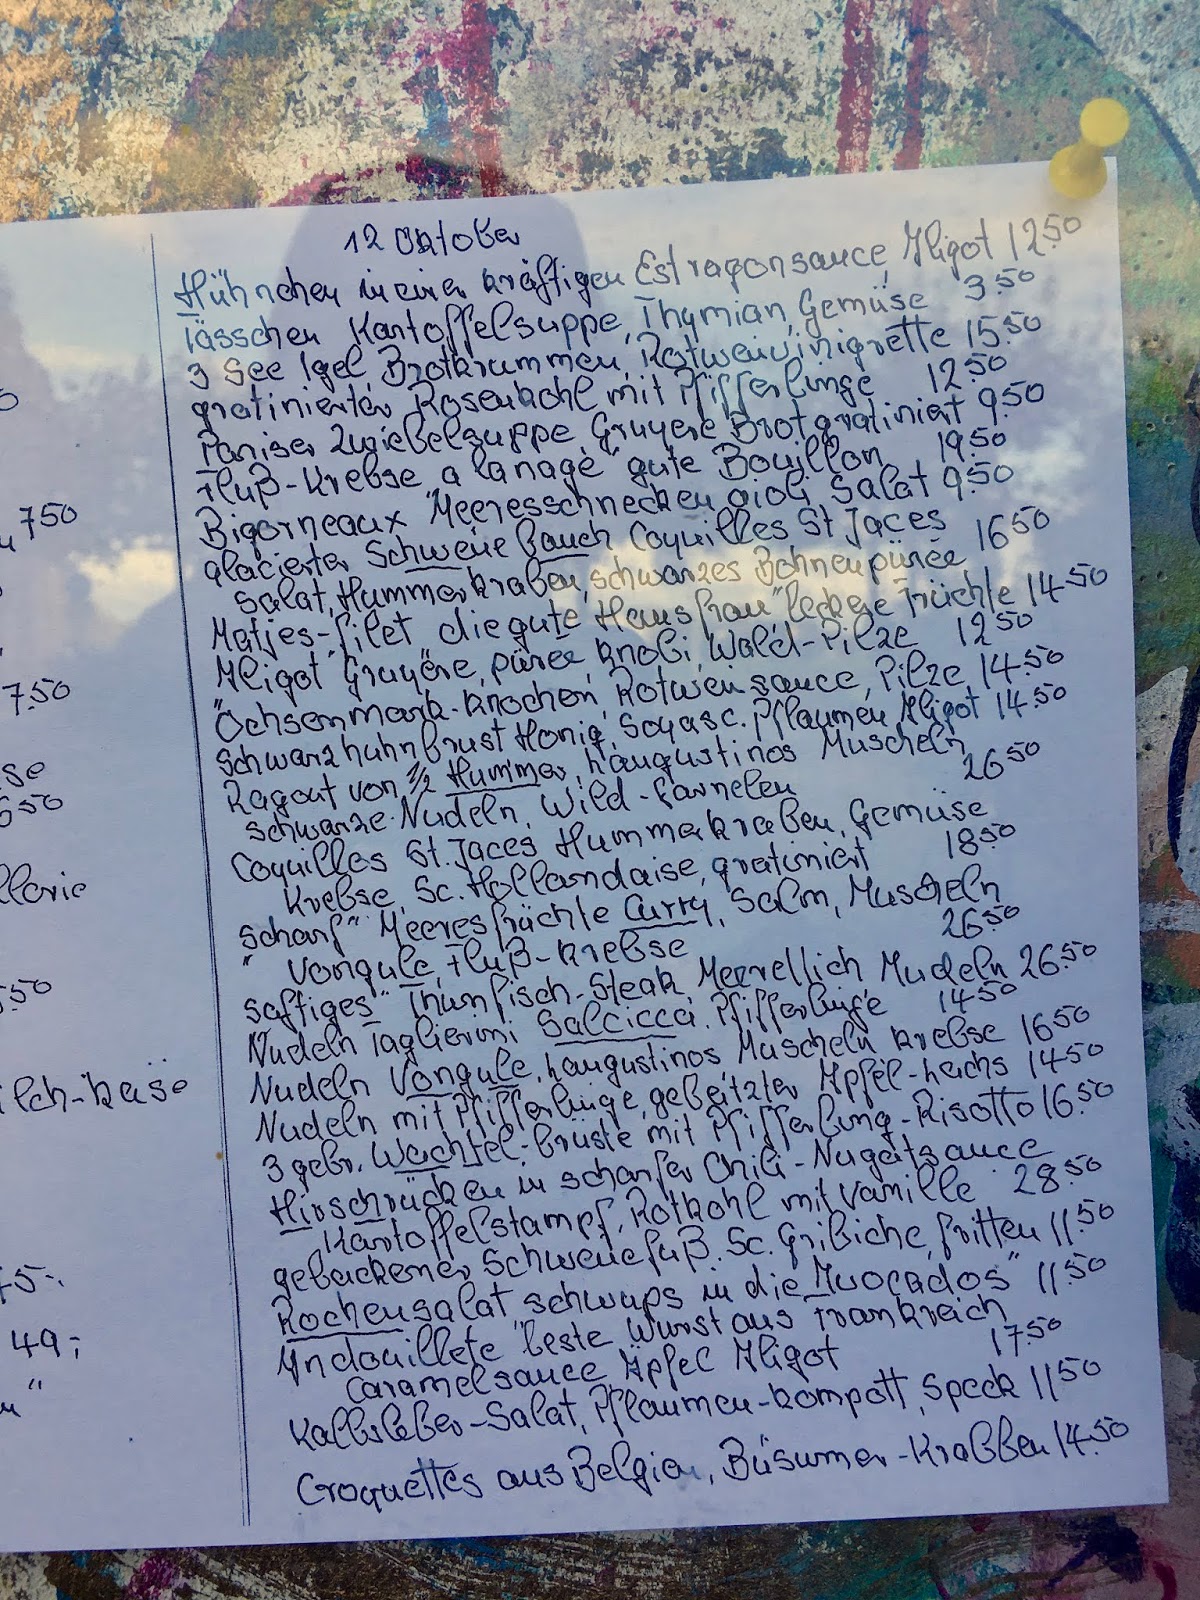 12 Oktober
Hühnchen in einer kräftigen Estragonsauce, Aligot 12.50
Tässchen Kartoffelsuppe, Thymian, Gemüse 3.50
3 See Igel, Brotkrummen, Rotweinvinigrette 15.50
gratinierter Rosenkohl mit Pfifferlinge 12.50
Pariser Zwiebelsuppe, Gruyere Brot gratiniert 9.50
Fluß-Krebse a la nage "gute Bouillon 19.50
Bigorneaux "Meeresschnecken aioli Salat 9.50
glacierter Schweinebauch Coquilles St Jaces
Salat, Hummerkraben, schwarzes Bohnenpürée 16.50
Matjes-filet die gute Hausfrau" leckere Früchte 14.50
Aligot Gruyère, pürée, Knobi, Wald-Pilze 12.50
"Ochsenmark-Knochen, Rotweinsauce, Pilze 14.50
Schwarzhuhnbrust Honig, Soyasc. Pflaumen, Aligot 14.50
Ragout von 1/2 Hummer, Laugustinos Muscheln
schwarze-Nudeln, Wild-Garnelen 26.50
Coquilles St. Jaces Hummerkraben, Gemüse
Krebse, Sc. Hollandaise, gratiniert 18.50
scharf" Meeresfrüchte Curry, Salm, Muscheln
" Vongule, Fluß-Krebse 26.50
saftiges" Thunfisch-Steak, Meerellich Nudeln 26.50
Nudeln Taglieroni Salcicca, Pfifferlinge 14.50
Nudeln Vongule, Laugustinos, Muscheln Krebse 16.50
Nudeln mit Pfifferlinge, gebeitzter Apfel-Lachs 14.50
3 gebr. Wachtel-brüste mit Pfifferling-Risotto 16.50
Hirschrücken in scharfer Chili-Nugatsauce
Kartoffelstampf, Rotkohl mit Vanille 28.50
gebackener Schweinefuß, Sc. Gribiche, fritten 11.50
Rochensalat schwups in die Avocados" 11.50
Andouillete "beste Wurst aus Frankreich
Caramelsauce Äpfel Aligot 17.50
Kalbsleber-Salat, Pflaumen-kompott, Speck 11.50
Croquettes aus Belgien, Büsumer-Krabben 14.50
7.50
7.50
se
6.50
llerie
.50
ilch-käse
75.-
49,-
"